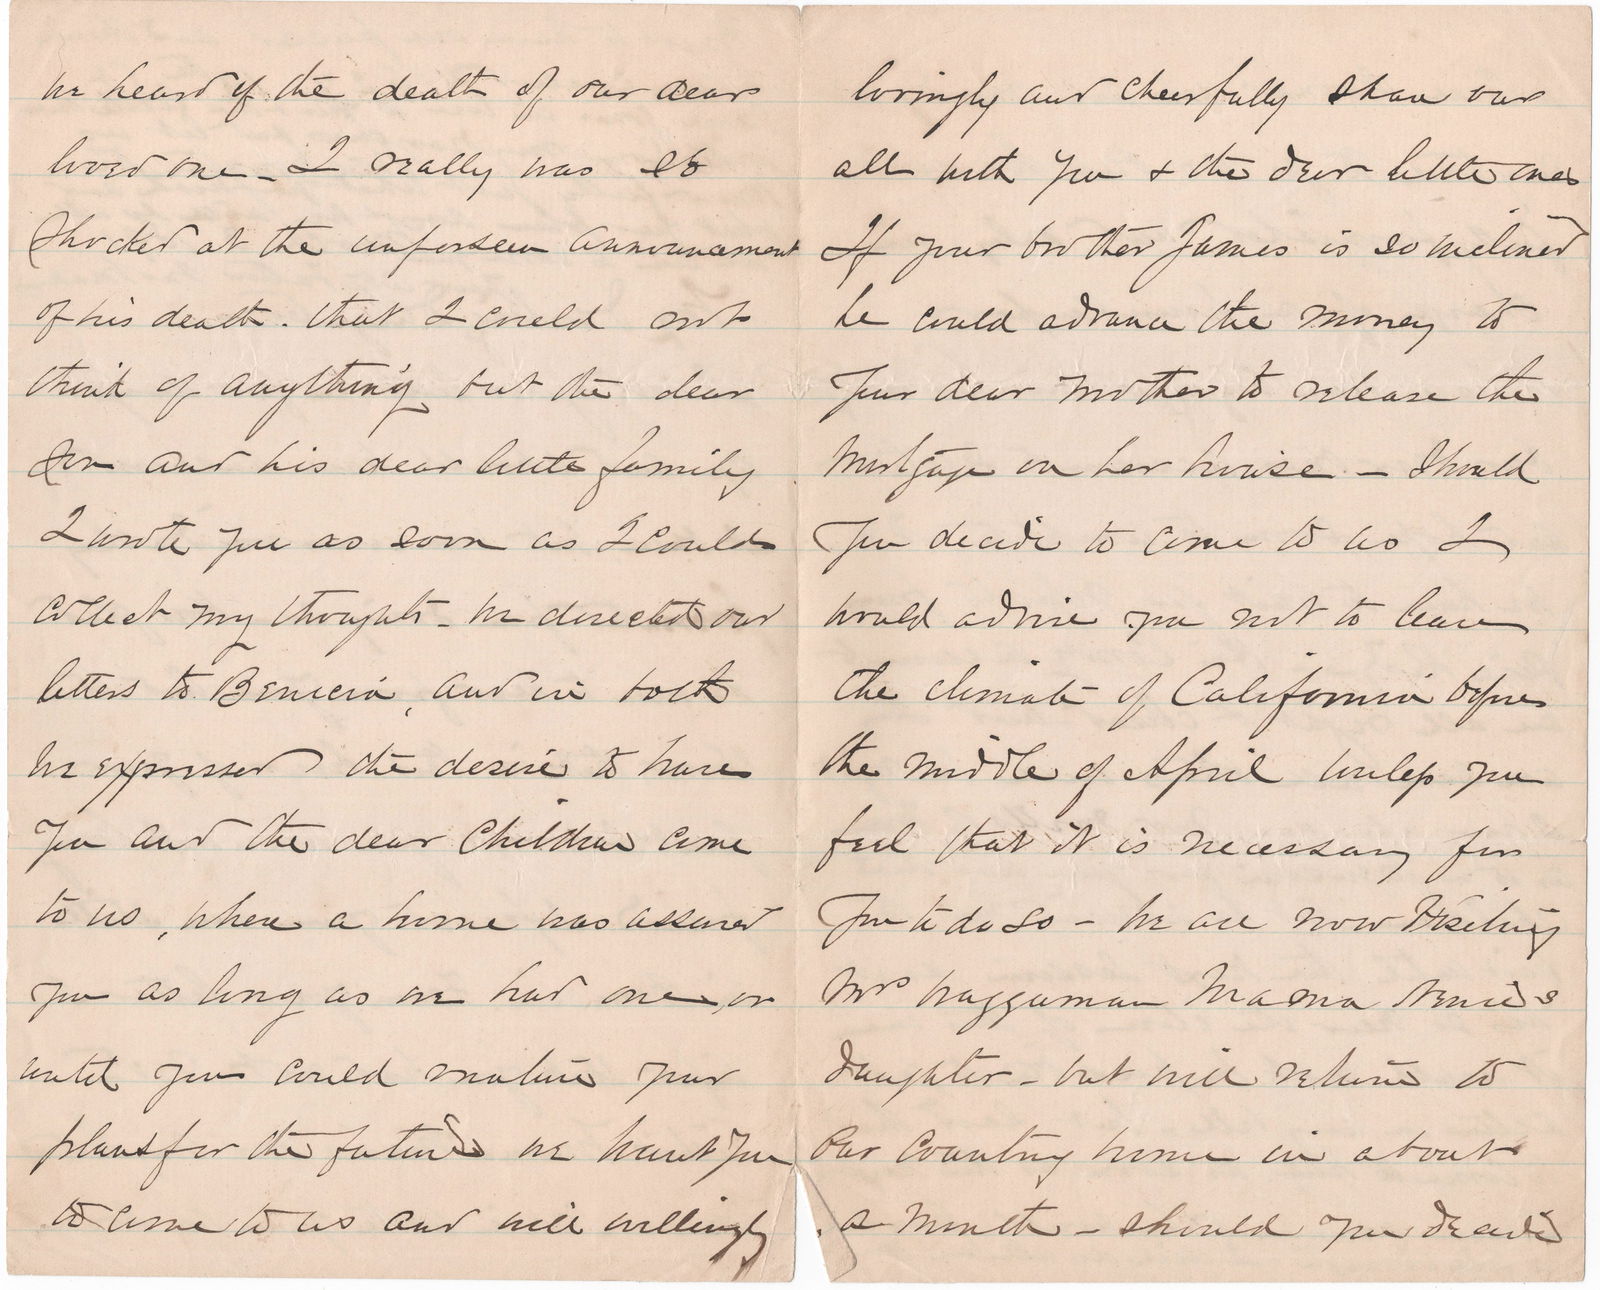 we heard of the death of our dear
loved one - I really was so
shocked at the unforseen announcement
of his death. that I could not
think of anything but the dear
son and his dear little family
I wrote you as soon as I could
collect my thoughts - we directed our
letters to Benicia, and in both
we expressed the desire to have
you and the dear Children come
to us, where a home was assured
you as long as we had one, or
until you could mature your
plans for the future we want you
to come to us and will willingly
lovingly and cheerfully share our
all with you & the dear little ones
If your brother James is so inclined
he could advance the money to
your dear mother to release the
Mortgage on her house - Should
you decide to come to us I
would advise you not to leave
the climate of California before
the middle of April unless you
feel that it is necessary for
you to do so - we are now visiting
Mrs Waggaman Mama
daughter - but will return to
our Country home in about
a month - should you decide